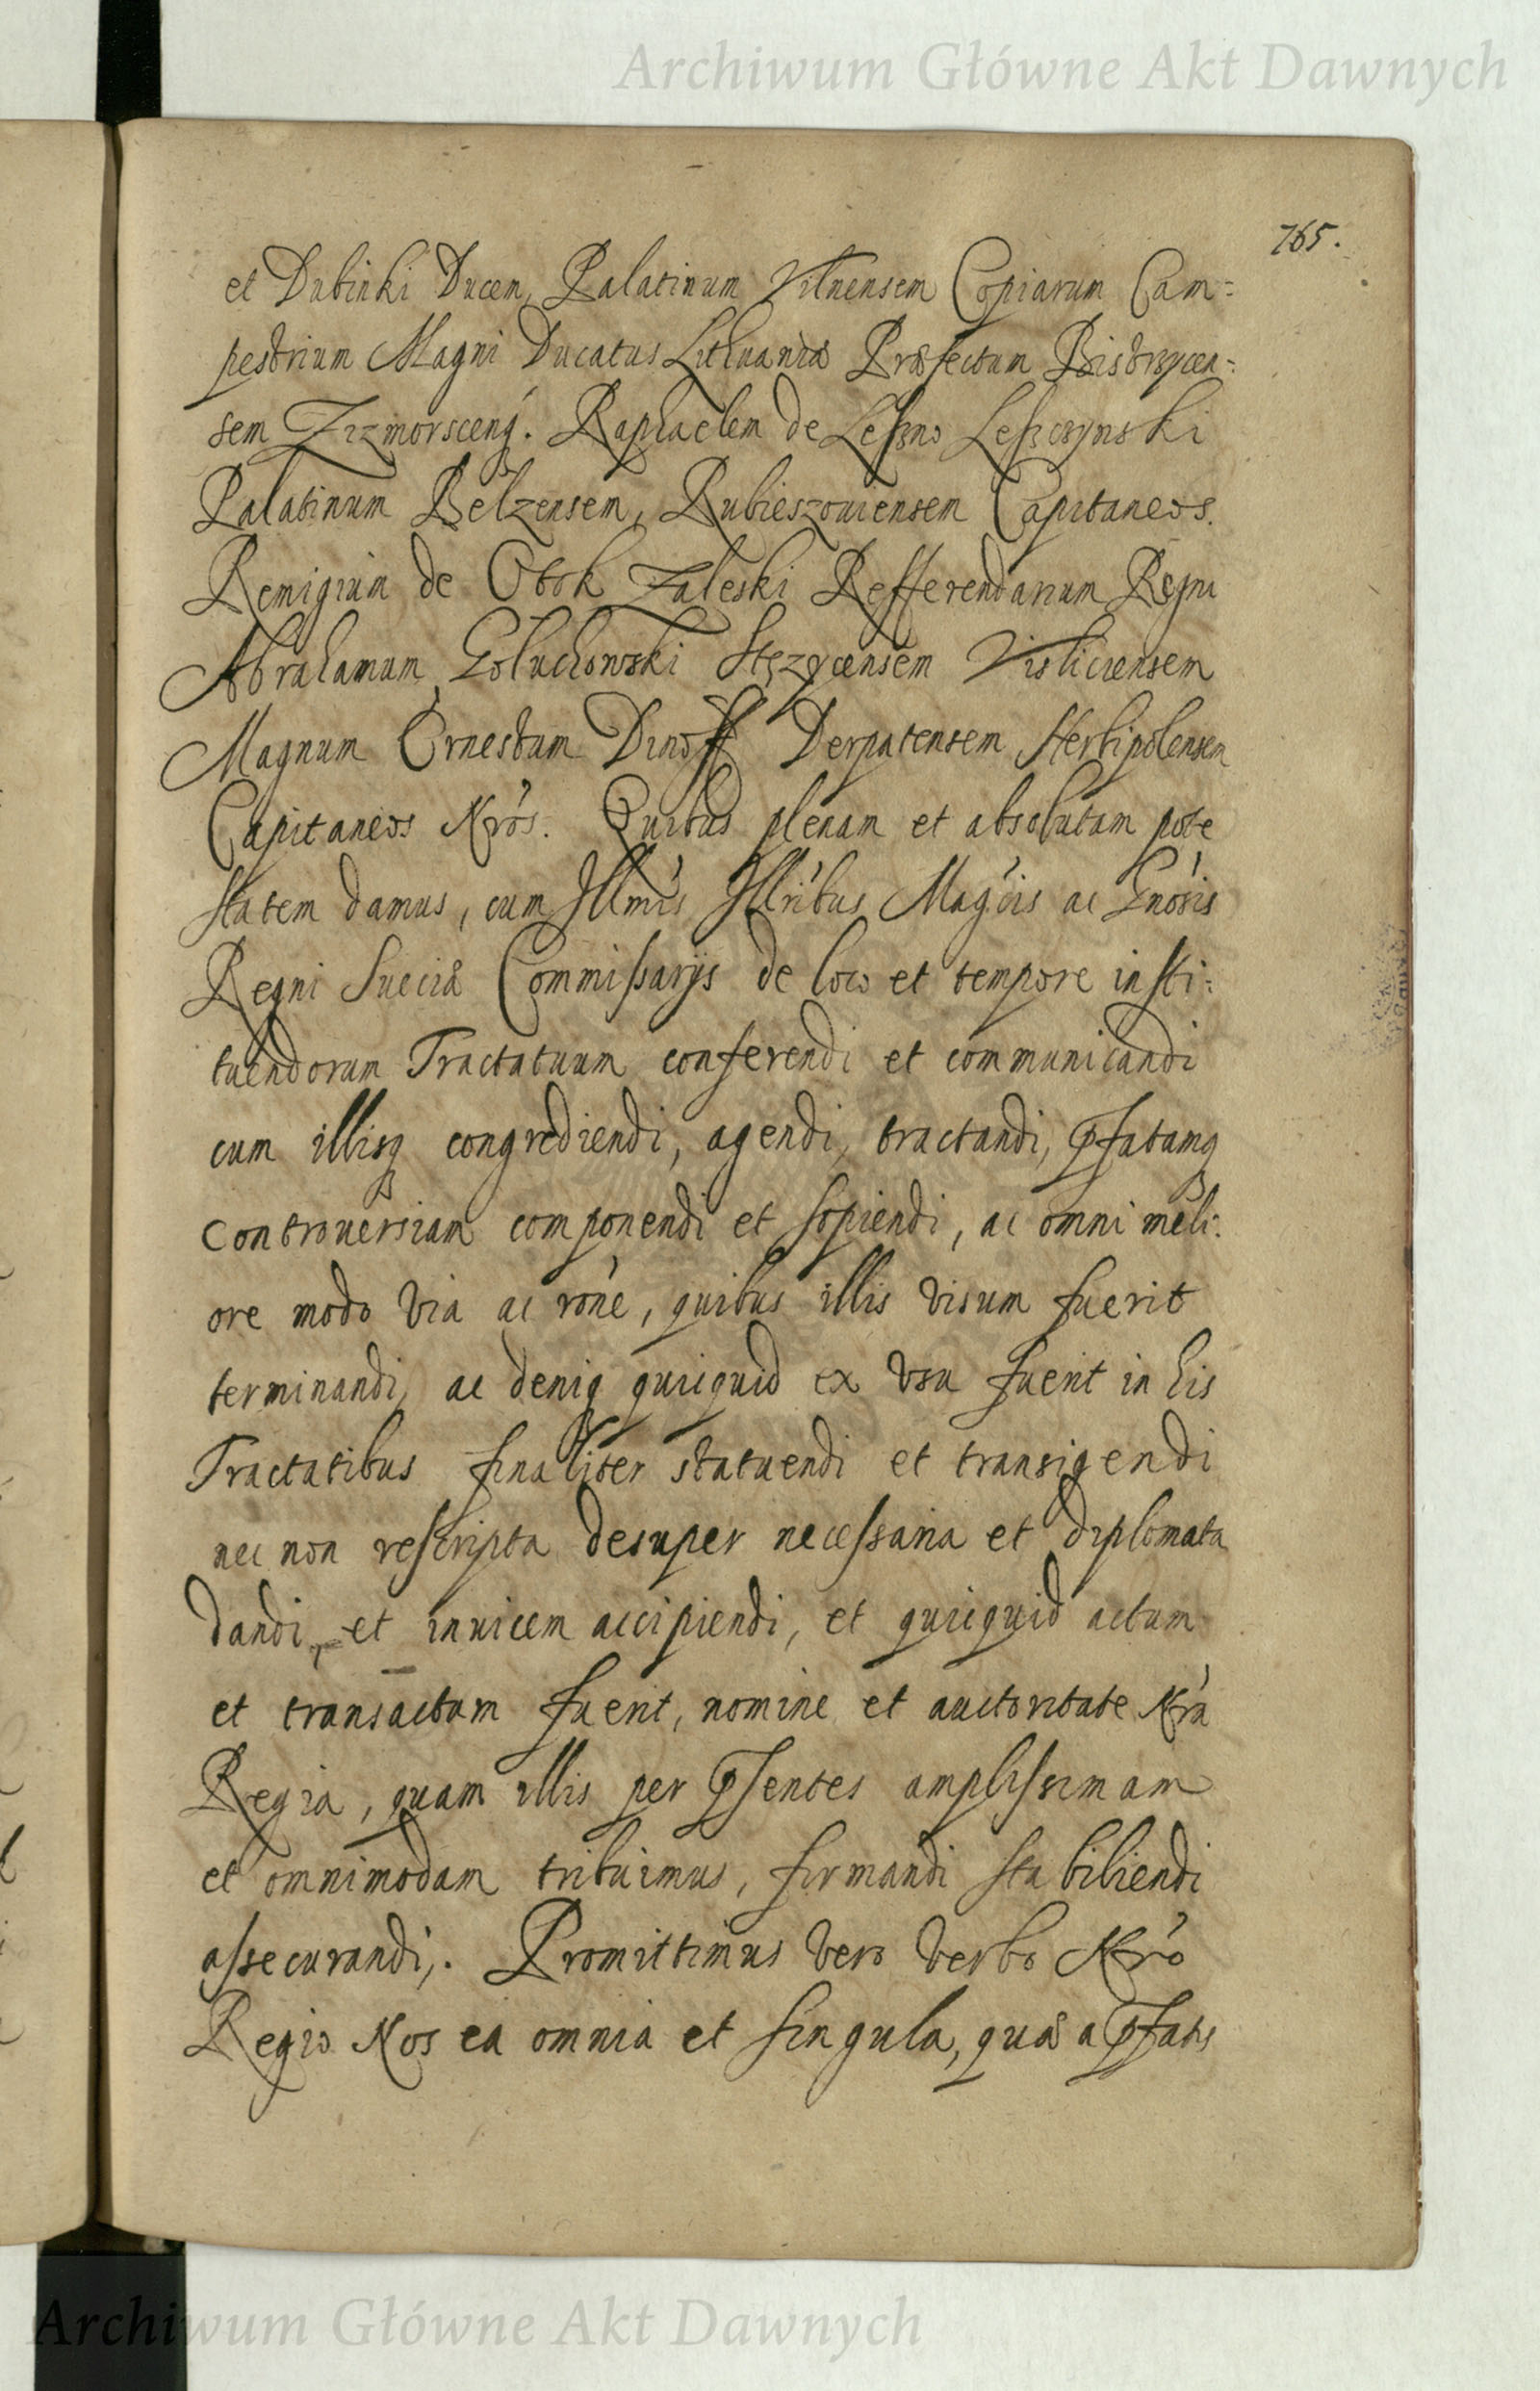 Archiwum Główne Akt Dawnych
765.
et Dubinki Ducem, Palatinum Vilnensem Copiarum Cam=
pestrium Magni Ducatus Lithuaniæ Præfectum Bistrzycen=
sem Zizmorscenq́. Raphaelem de Leszno Leszczynski
Palatinum Belzensem, Rubieszouiensem Capitaneos.
Remigium de Otok Zaleski Refferendarium Regni
Abrahamum Goluchowski Stęzycensem Visliciensem
Magnum Ernestum Dinoff Derpatensem Herbipolensem
Capitaneos Nrós. Quibus plenam et absolutam pote
statem damus, cum Illmis Illribus Magcis ac Gnosis
Regni Sueciæ Commissarijs de loco et tempore insti=
tuendorum Tractatuum conferendi et communicandi
cum illisq congrediendi, agendi, tractandi, pfatamq
controuersiam componendi et sopiendi, ac omni meli=
ore modo via ac rone, quibus illis visum fuerit
terminandi, ac deniq quicquid ex vsu fuerit in his
Tractatibus finaliter statuendi et transigendi
nec non rescripta desuper necessaria et diplomata
dandi, et inuicem accipiendi, et quicquid actum
et transactum fuerit, nomine et auctoritate Nrá
Regia, quam illis per psentes amplissimam
et omnimodam tribuimus, firmandi stabiliendi
assecurandi,. Promittimus vero verbo Nró
Regio Nos ea omnia et singula, quæ a pfatis
Archiwum Główne Akt Dawnych